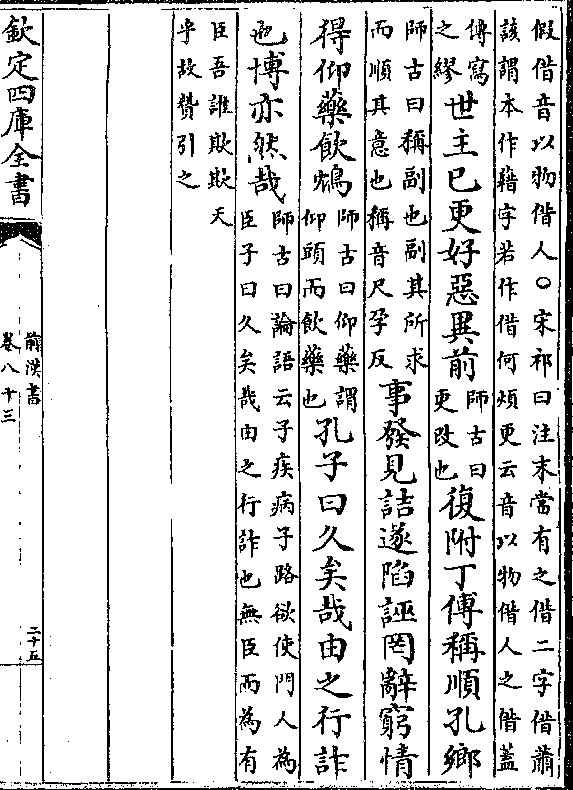 假借音以物借人○宋祁曰注末當有之借二字借蕭
該謂本作藉字若作借何煩更云音以物借人之借蓋
傳寫之繆世主已更好惡異前師古曰更改也復附丁傅稱順孔鄉
師古曰稱副也副其所求而順其意也稱音尺孕反事發見詰遂陷誣罔辭窮情
得仰藥飲鴆師古曰仰藥謂仰頭而飲藥也孔子曰久矣哉由之行詐
也博亦然哉師古曰論語云子疾病子路欲使門人為臣子曰久矣哉由之行詐也無臣而為有
臣吾誰欺欺天
乎故贊引之
欽定四庫全書
前漢書
卷八十三
二十五